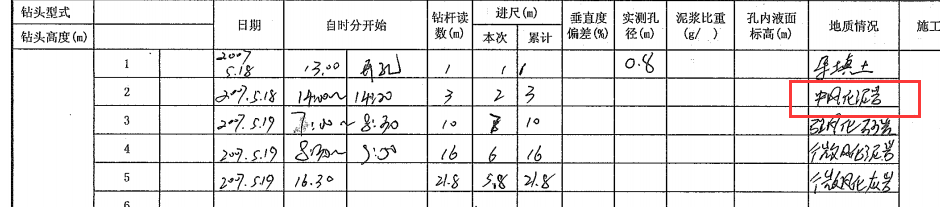 钻头型式
钻头高度(m)
日期
自时分开始
钻杆读数(m)
进尺(m)
本次
累计
垂直度偏差(%)
实测孔径(m)
泥浆比重(g/ )
孔内液面标高(m)
地质情况
施工
1 2007.5.18 13.00 开孔 1 1 1 0.8 杂填土
2 2007.5.18 14:00~14:20 3 2 3 中风化泥岩
3 2007.5.19 7:00~8:30 10 7 10 强风化
4 2007.5.19 16 6 16 微风化泥岩
5 2007.5.19 16.30 21.8 5.8 21.8 微风化灰岩
6